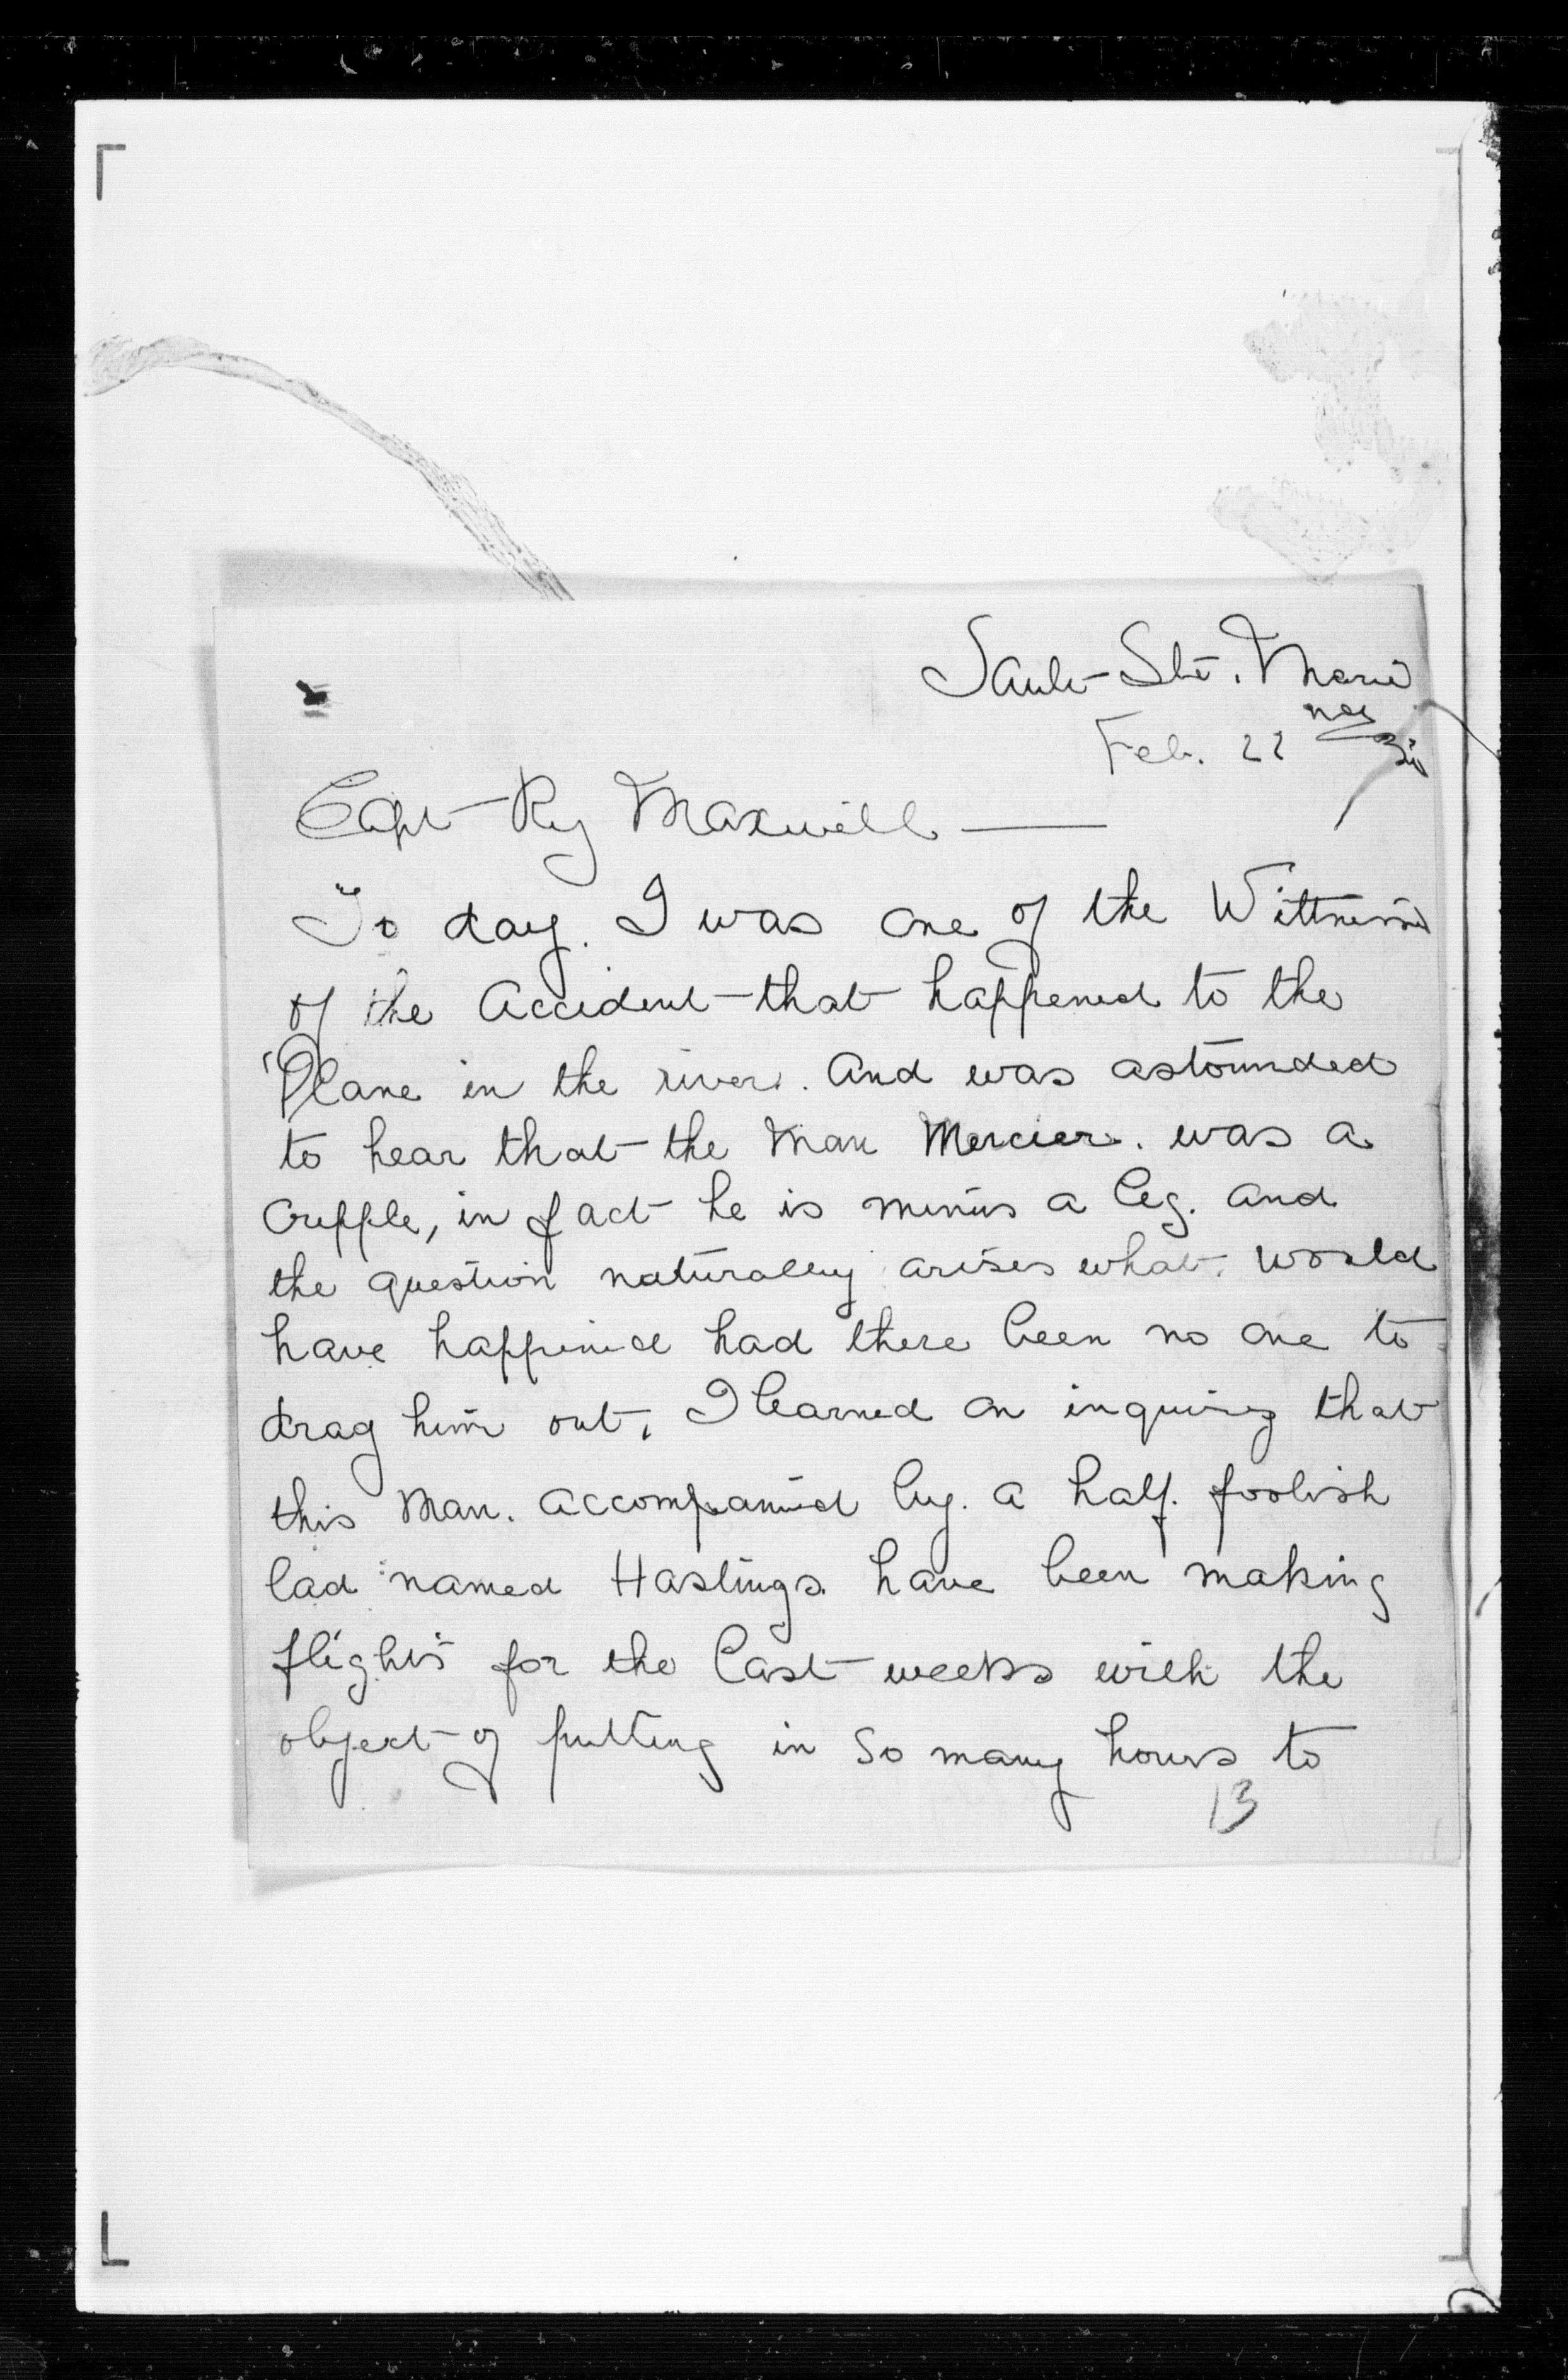 Sault Ste. Marie
Feb. 22
Capt Roy Maxwell —
To day. I was one of the Wittnesses
of the Accident that happened to the
Plane in the river. And was astounded
to hear that the Man Mercier. was a
Cripple, in fact he is minus a leg. And
the question naturally arises what. would
have happened had there been no one to
drag him out, I learned on inquiry that
this Man. accompanied by. a half. foolish
lad named Hastings. have been making
flights for the last weeks with the
object of putting in so many hours to
13